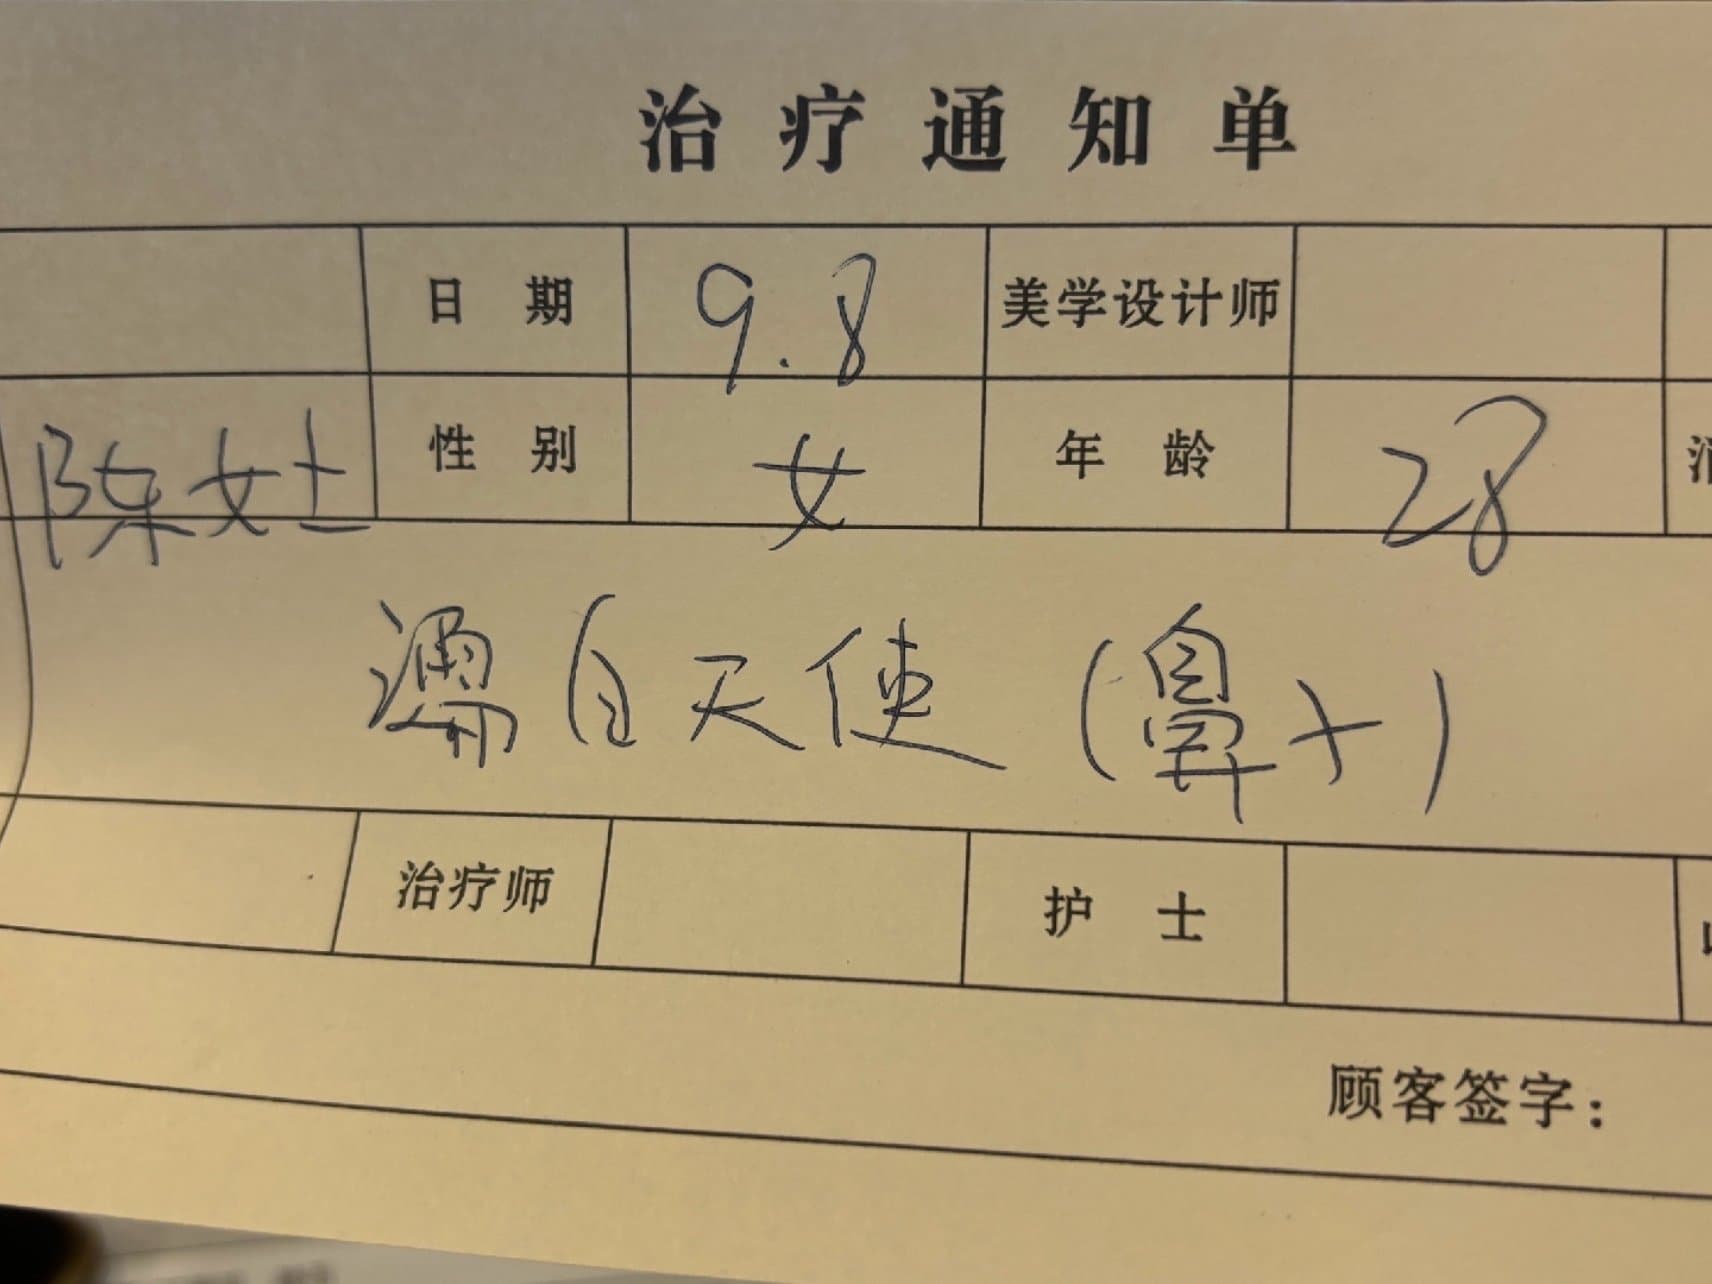 治疗通知单
日期 9.8 美学设计师
陈女士 性别 女 年龄 28
濡白天使（鼻+）
治疗师 护士
顾客签字：